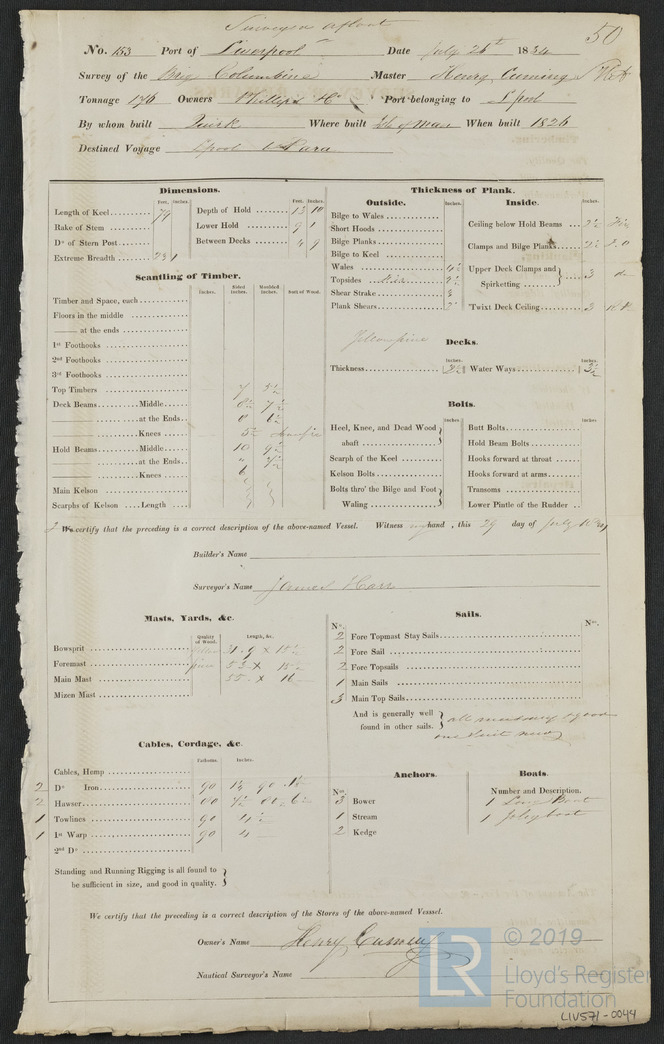 Surveyed afloat
50
No. 153 Port of Liverpool Date July 26t 1834
Survey of the Brig Columbine Master Henry Cuming
Tonnage 176 Owners Phillips & Co Port belonging to L'pool
By whom built Quirk Where built Isle of Man When built 1826
Destined Voyage Lpool to Para
Dimensions.
Feet. Inches.
Length of Keel 79
Rake of Stem
Do of Stern Post
Extreme Breadth 23 1
Feet. Inches.
Depth of Hold 13 10
Lower Hold 9 1
Between Decks 4 9
Scantling of Timber.
Inches. Sided Inches. Moulded Inches. Sort of Wood.
Timber and Space, each
Floors in the middle
—— at the ends
1st Foothooks
2nd Foothooks
3rd Foothooks
Top Timbers 7 5½
Deck Beams Middle 8½ 7½
at the Ends 8 6½
Knees 5½
Hold Beams Middle 10 9½
at the Ends " 7½
Knees 6
Main Kelson
Scarphs of Kelson Length
Thickness of Plank.
Outside.
Inches.
Bilge to Wales
Short Hoods
Bilge Planks
Bilge to Keel
Wales 4½
Topsides
Shear Strake 3
Plank Shears
Inside.
Inches.
Ceiling below Hold Beams 2½
Clamps and Bilge Planks 2½
Upper Deck Clamps and Spirketting 3 do
Twixt Deck Ceiling 3
Decks.
Yellow pine
Inches.
Thickness 2½
Inches.
Water Ways 3½
Bolts.
Inches
Heel, Knee, and Dead Wood abaft
Scarph of the Keel
Kelson Bolts
Bolts thro' the Bilge and Foot Waling
Inches
Butt Bolts
Hold Beam Bolts
Hooks forward at throat
Hooks forward at arms
Transoms
Lower Pintle of the Rudder
I We certify that the preceding is a correct description of the above-named Vessel. Witness my hand, this 29 day of July 1834
Builder's Name
Surveyor's Name James Carr
Masts, Yards, &c.
Quality of Wood. Length, &c.
Bowsprit 31.9 x 18½
Foremast pine 53 x 15½
Main Mast 55 x 16
Mizen Mast
Sails.
No. No.
2 Fore Topmast Stay Sails
2 Fore Sail
2 Fore Topsails
1 Main Sails
3 Main Top Sails
And is generally well found in other sails. all necessary & good
one suit new
Cables, Cordage, &c.
Fathoms. Inches.
Cables, Hemp
2 Do Iron 90
2 Hawser
1 Towlines 90 4½
1 1st Warp 90 4
2nd Do
Standing and Running Rigging is all found to be sufficient in size, and good in quality.
Anchors.
No.
3 Bower
1 Stream
2 Kedge
Boats.
Number and Description.
1 Long Boat
1 Jolly boat
We certify that the preceding is a correct description of the Stores of the above-named Vesssel.
Owner's Name Henry Cuming
Nautical Surveyor's Name
LR © 2019
Lloyd's Register
Foundation
LIV571-0044